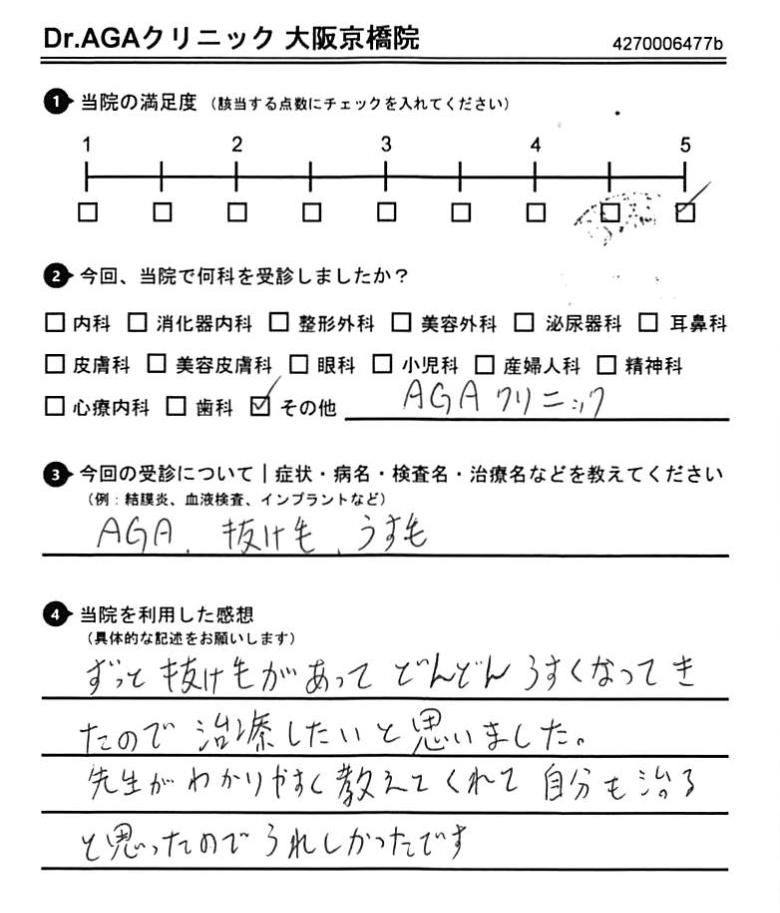 Dr.AGAクリニック 大阪京橋院 4270006477b
1 当院の満足度 （該当する点数にチェックを入れてください）
1 2 3 4 5
2 今回、当院で何科を受診しましたか？
□ 内科 □ 消化器内科 □ 整形外科 □ 美容外科 □ 泌尿器科 □ 耳鼻科
□ 皮膚科 □ 美容皮膚科 □ 眼科 □ 小児科 □ 産婦人科 □ 精神科
□ 心療内科 □ 歯科 ☑ その他 AGAクリニック
3 今回の受診について｜症状・病名・検査名・治療名などを教えてください
（例：結膜炎、血液検査、インプラントなど）
AGA、抜け毛、うす毛
4 当院を利用した感想
（具体的な記述をお願いします）
ずっと抜け毛があって どんどん うすくなってき
たので 治療したいと思いました。
先生が わかりやすく教えてくれて 自分も治る
と思ったので うれしかったです